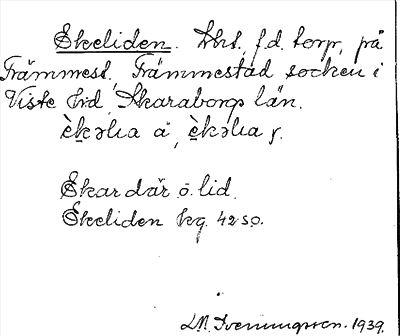 Ekeliden. Lht, f.d. torp, på
Främmest, Främmestad socken i
Viste hd, Skaraborgs län.
è̱kəlia å, è̱kəlia f.
Ekar där o. lid.
Ekeliden kg. 42 so.
1939.